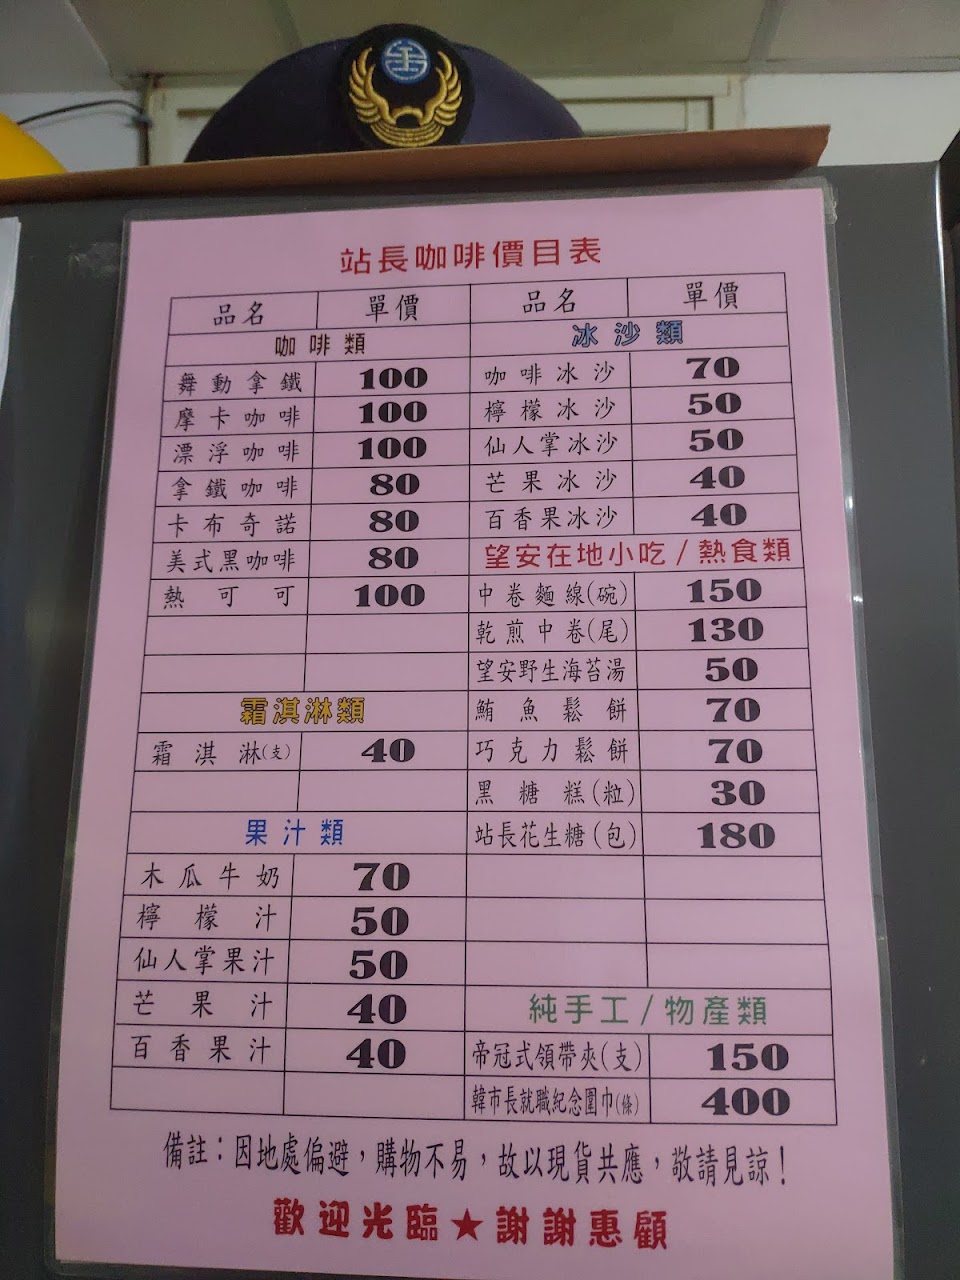 站長咖啡價目表
品名 單價 品名 單價
咖啡類 冰沙類
舞動拿鐵 100 咖啡冰沙 70
摩卡咖啡 100 檸檬冰沙 50
漂浮咖啡 100 仙人掌冰沙 50
拿鐵咖啡 80 芒果冰沙 40
卡布奇諾 80 百香果冰沙 40
美式黑咖啡 80 望安在地小吃/熱食類
熱可可 100 中卷麵線(碗) 150
乾煎中卷(尾) 130
望安野生海苔湯 50
霜淇淋類 鮪魚鬆餅 70
霜淇淋(支) 40 巧克力鬆餅 70
黑糖糕(粒) 30
果汁類 站長花生糖(包) 180
木瓜牛奶 70
檸檬汁 50
仙人掌果汁 50
芒果汁 40 純手工/物產類
百香果汁 40 帝冠式領帶夾(支) 150
韓市長就職紀念圍巾(條) 400
備註：因地處偏避，購物不易，故以現貨共應，敬請見諒！
歡迎光臨★謝謝惠顧